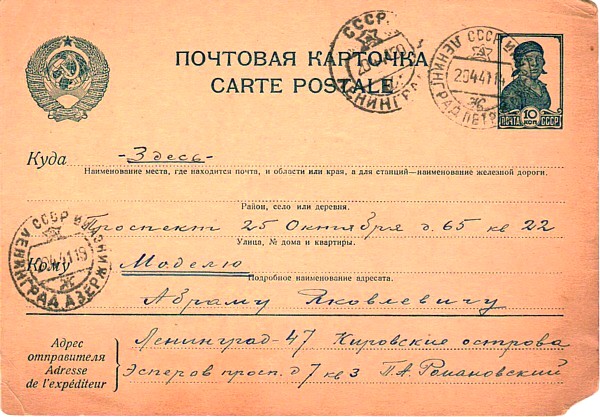 ПОЧТОВАЯ КАРТОЧКА
CARTE POSTALE
СССР
ЛЕНИНГРАД
ЛЕНИНГРАД СССР
20441
ПОЧТА 10 КОП СССР
Куда -Здесь-
Наименование места, где находится почта, и области или края, а для станций—наименование железной дороги.
Район, село или деревня.
Проспект 25 Октября д. 65 кв 22
Улица, № дома и квартиры.
ЛЕНИНГРАД СССР
Кому Моделю
Подробное наименование адресата.
Абраму Яковлевичу
Адрес отправителя
Adresse de l'expéditeur
Ленинград-47 Кировские острова
Эсперов просп. д 7 кв 3 П.А. Романовский